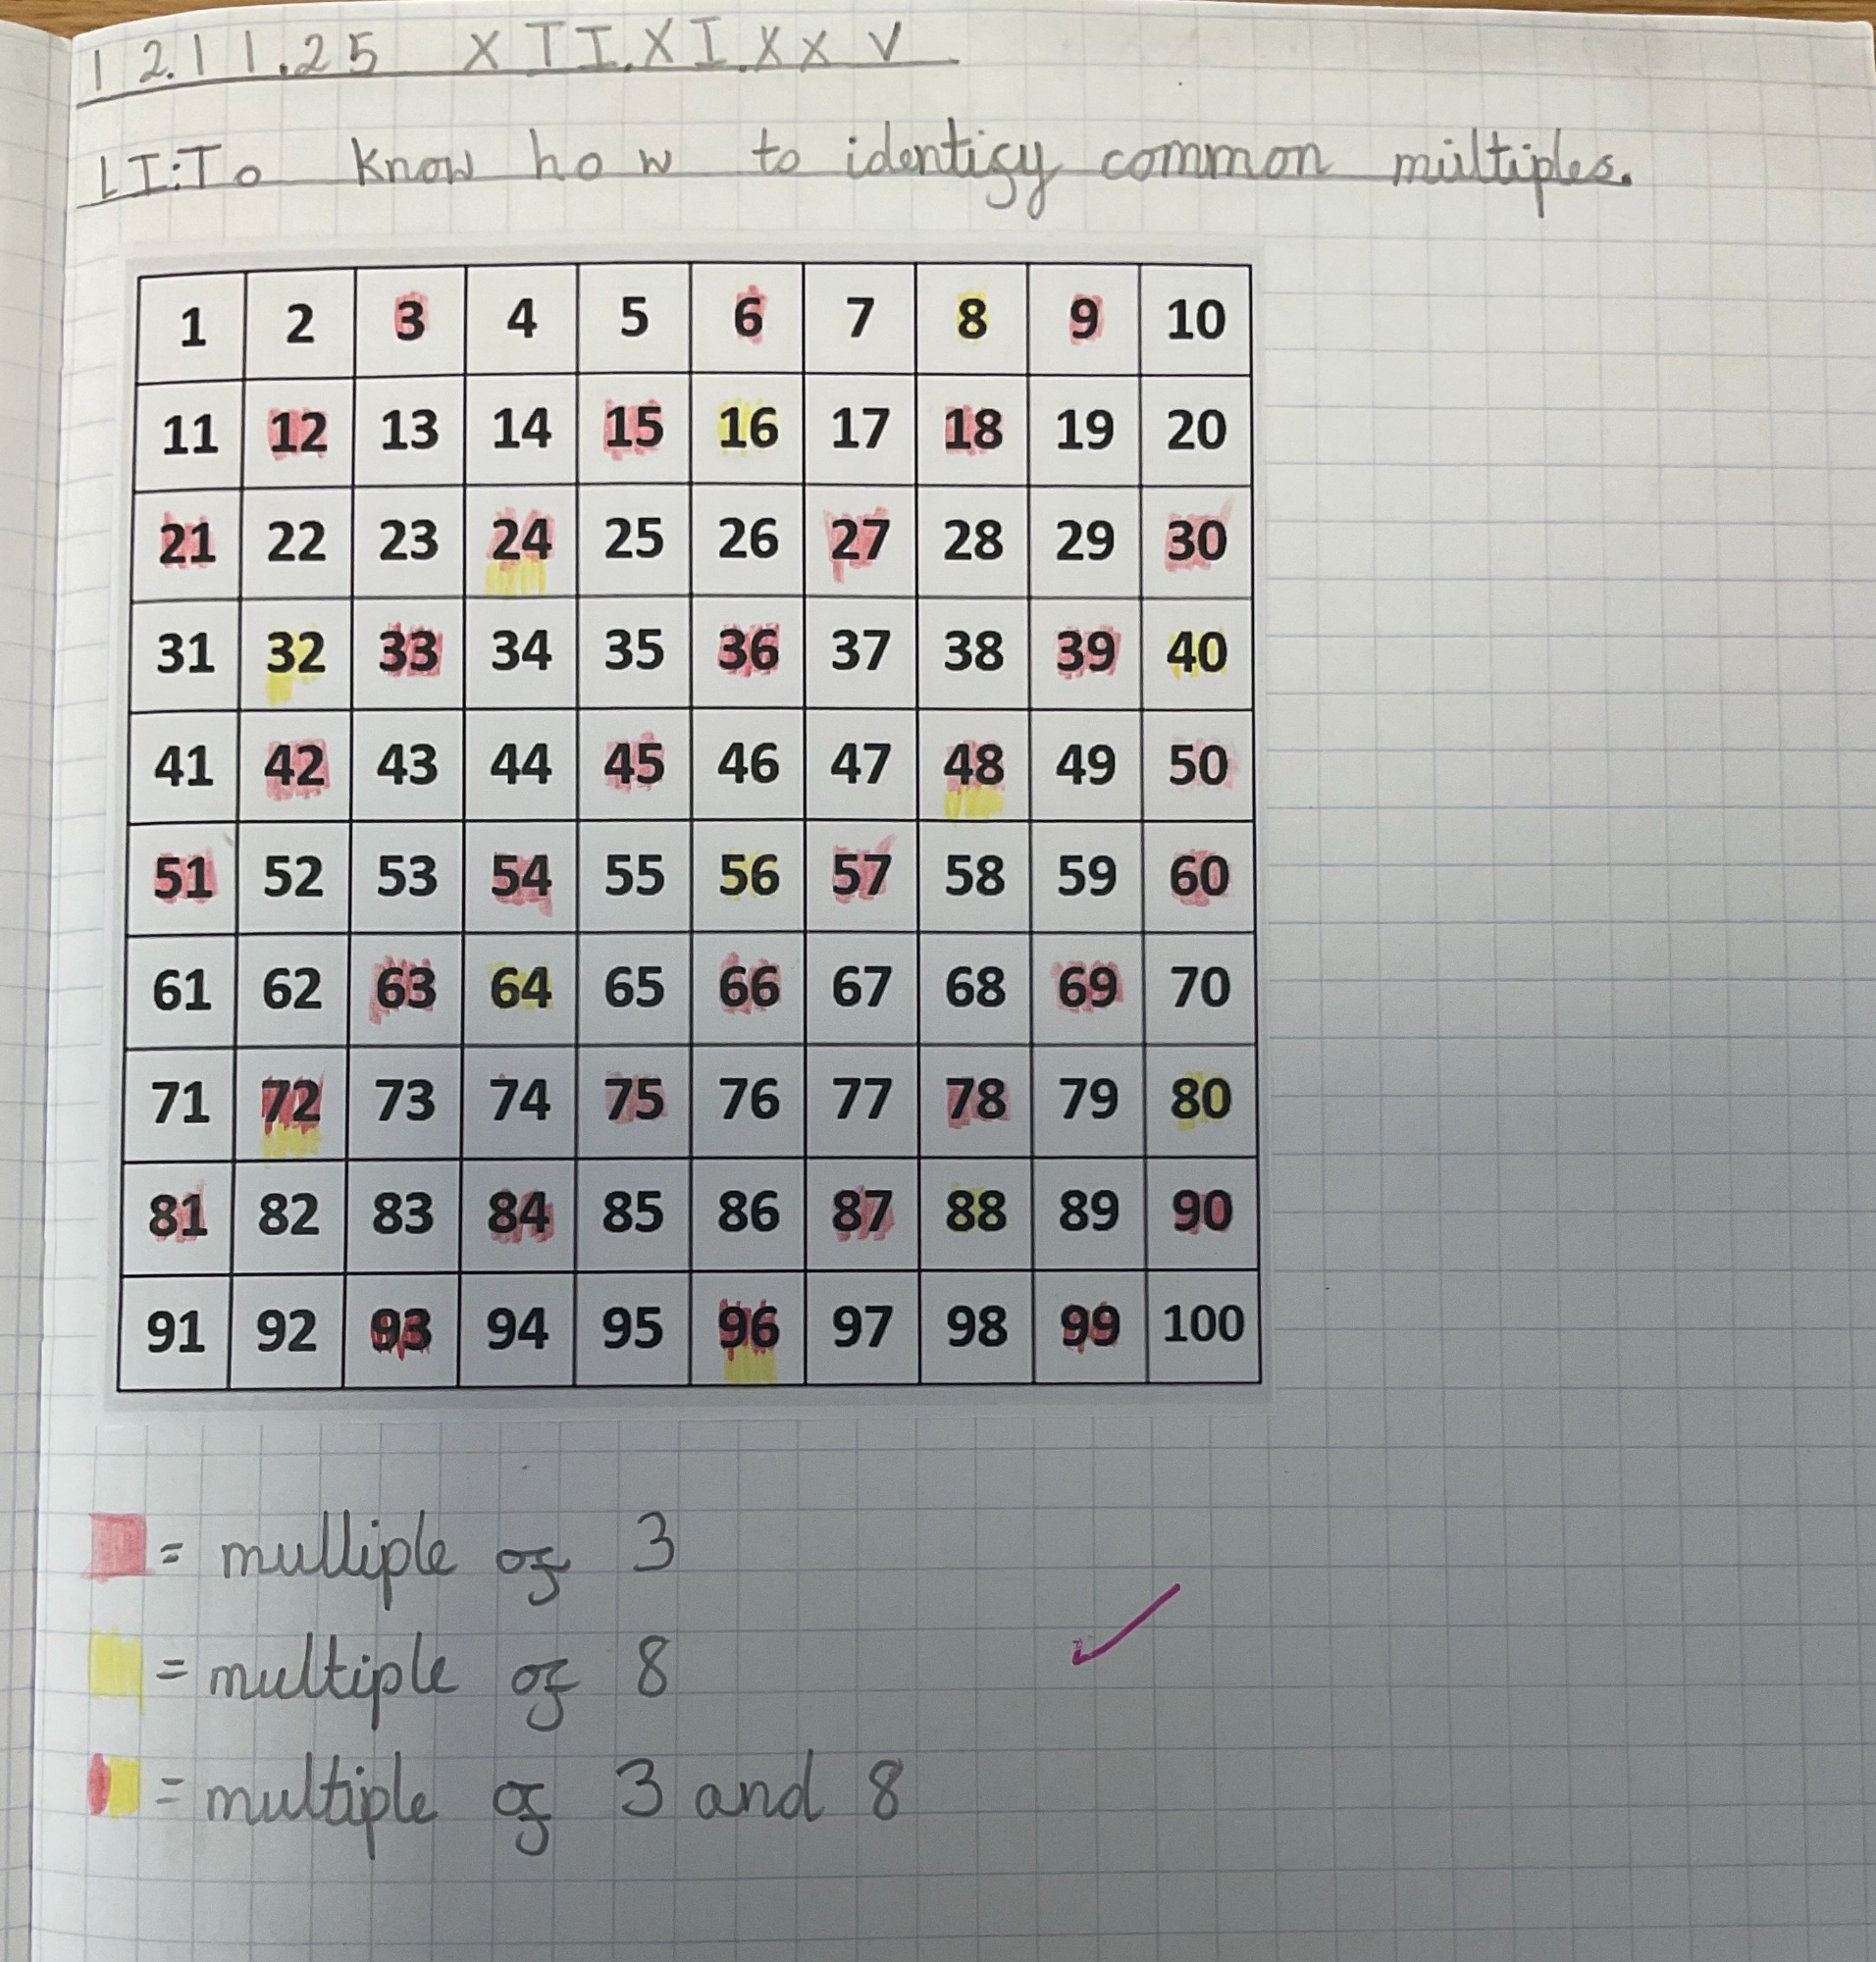 12.11.25 XII.XI.XXV
LI:To know how to identify common multiples.
1 2 3 4 5 6 7 8 9 10
11 12 13 14 15 16 17 18 19 20
21 22 23 24 25 26 27 28 29 30
31 32 33 34 35 36 37 38 39 40
41 42 43 44 45 46 47 48 49 50
51 52 53 54 55 56 57 58 59 60
61 62 63 64 65 66 67 68 69 70
71 72 73 74 75 76 77 78 79 80
81 82 83 84 85 86 87 88 89 90
91 92 93 94 95 96 97 98 99 100
= multiple of 3
= multiple of 8
= multiple of 3 and 8